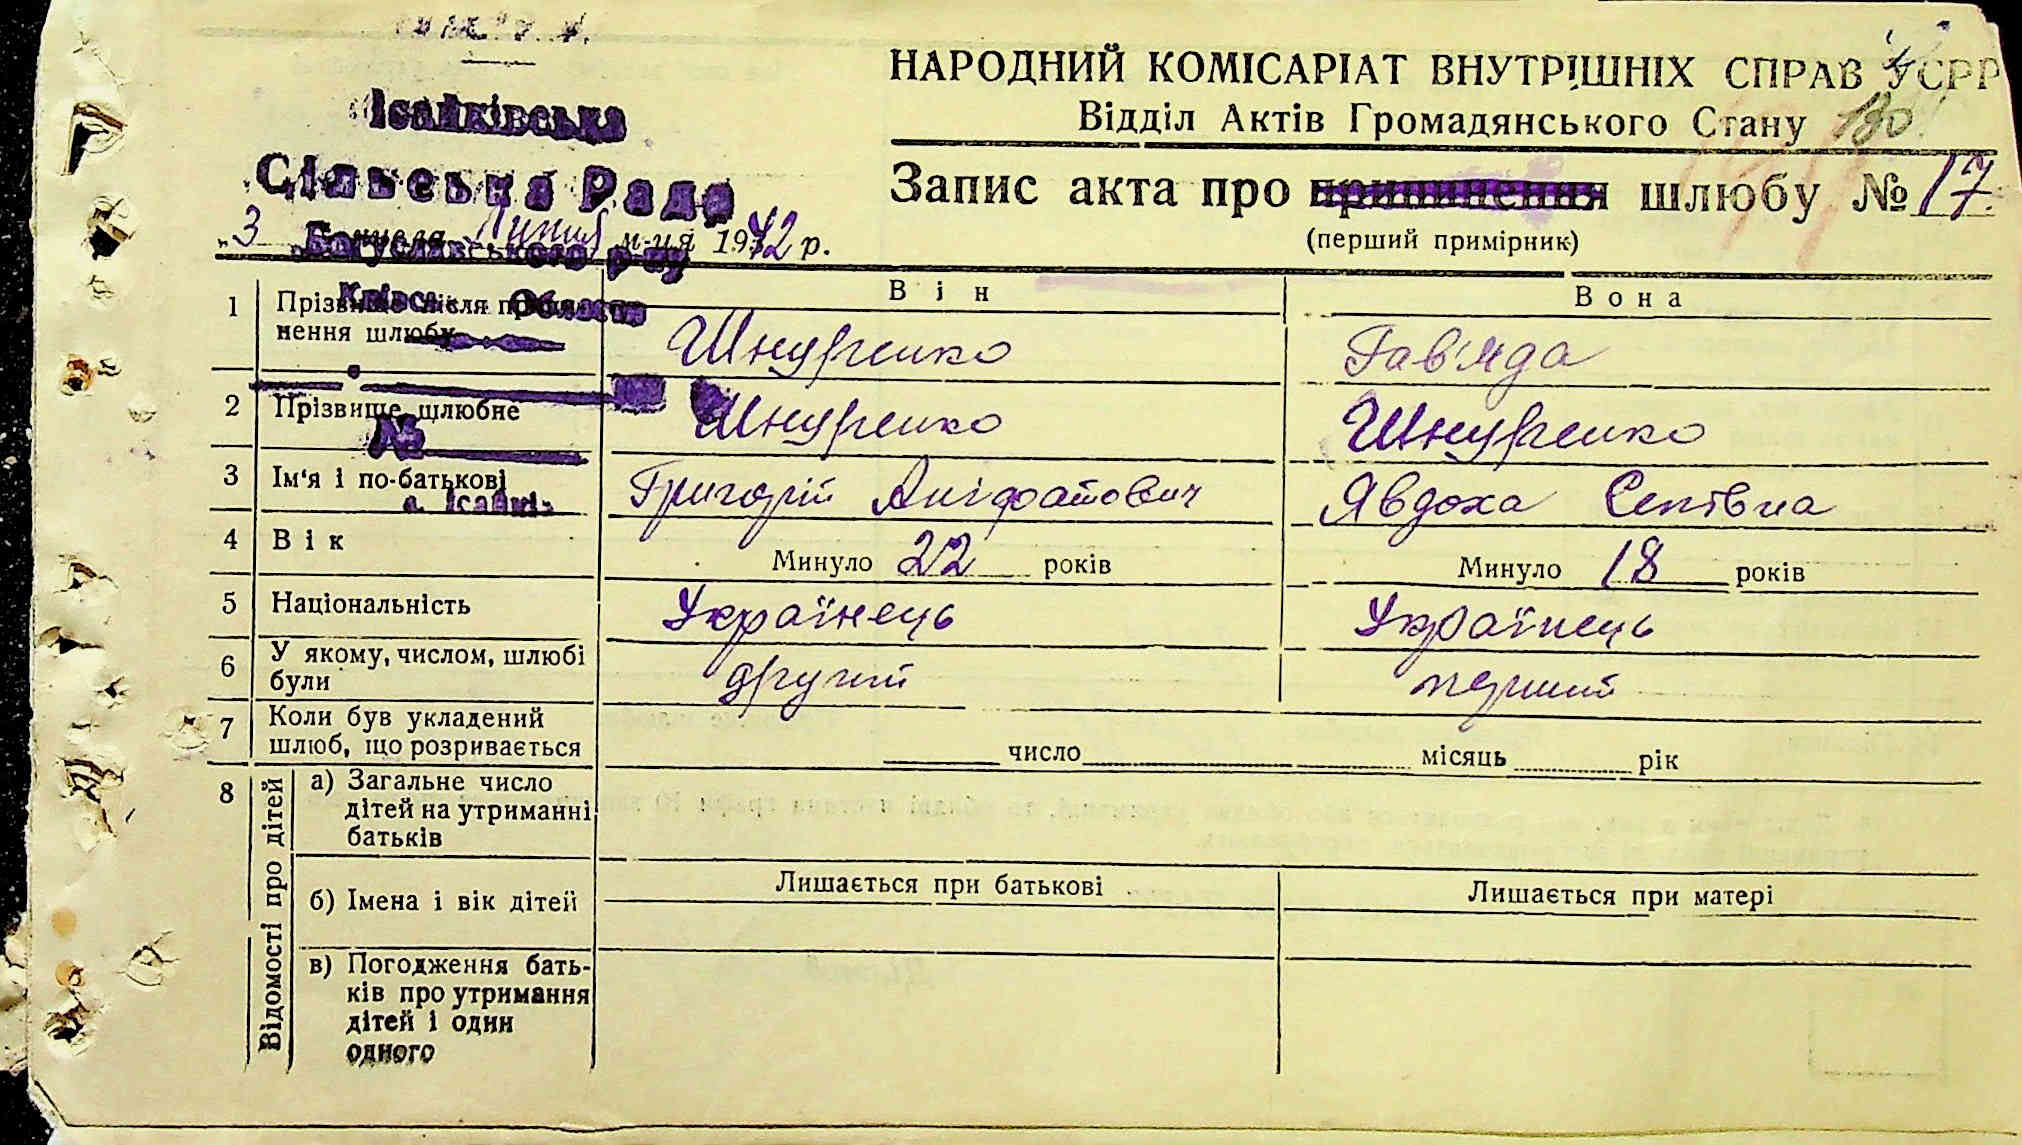 Ісайківська
Сільська Рада
Богуславського р-ну
Області
№
с. Ісайкі
НАРОДНИЙ КОМІСАРІАТ ВНУТРІШНІХ СПРАВ УСРР
Відділ Актів Громадянського Стану 130
Запис акта про припинення шлюбу № 17
(перший примірник)
„3 числа Липня м-ця 1942 р.
Він Вона
1 Прізвище після припинення шлюбу Шнуренко Гав'яда
2 Прізвище шлюбне Шнуренко Шнуренко
3 Ім'я і по-батькові Григорій Явдоха
4 Вік Минуло 22 років Минуло 18 років
5 Національність Українець Українець
6 У якому, числом, шлюбі
були другий перший
7 Коли був укладений
шлюб, що розривається число місяць рік
8 Відомості про дітей
а) Загальне число
дітей на утриманні
батьків
б) Імена і вік дітей Лишається при батькові Лишається при матері
в) Погодження бать-
ків про утримання
дітей і один
одного